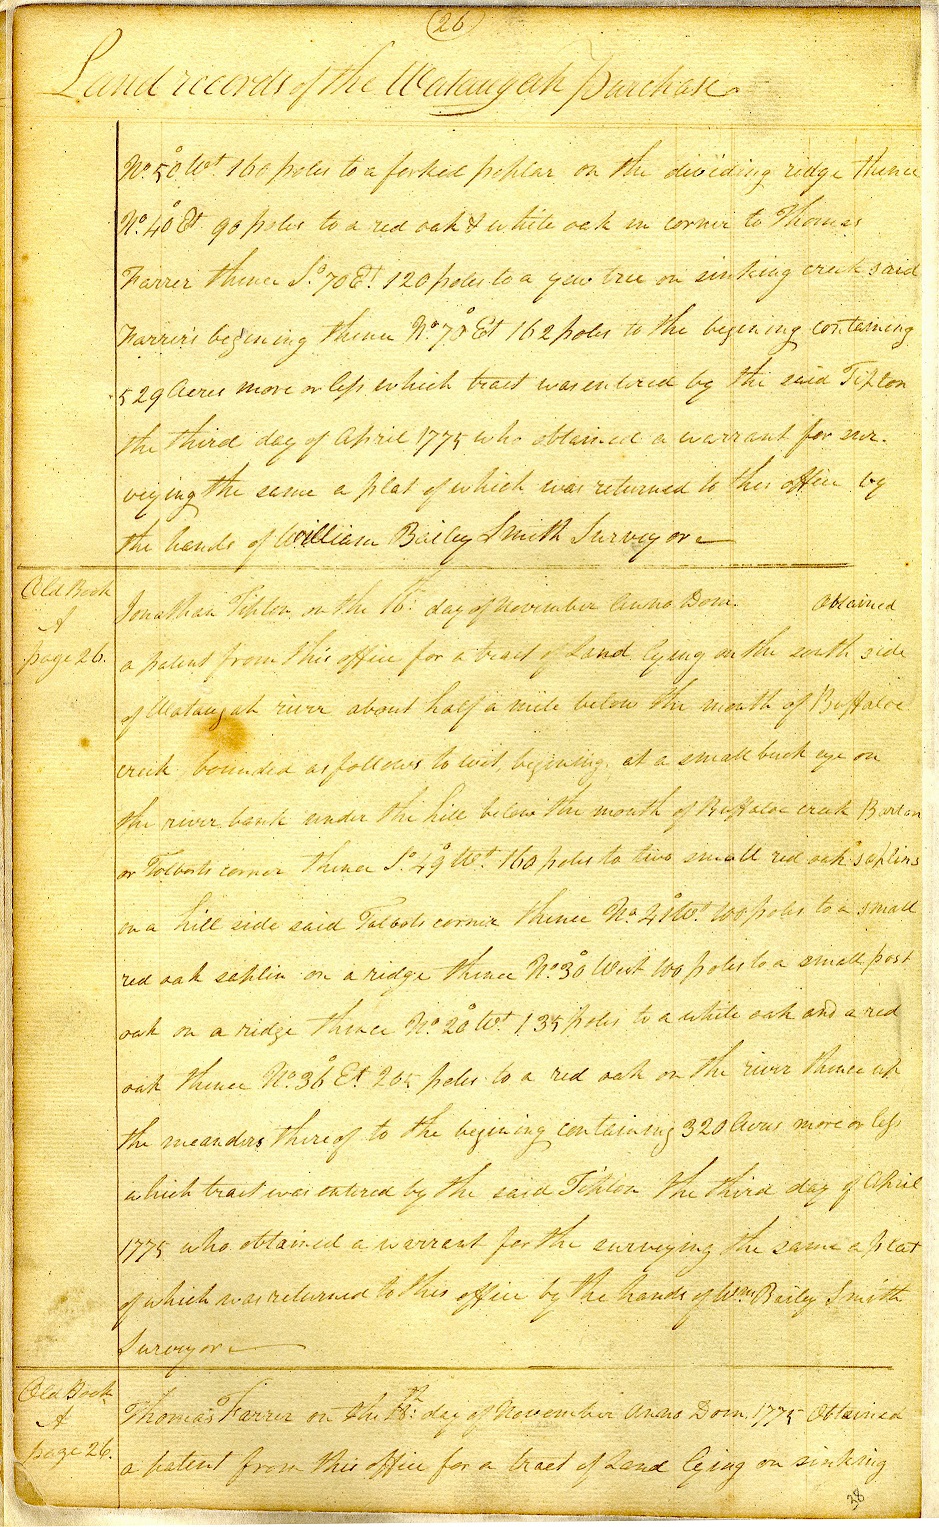 (26)
Land records of the Wataugah purchase
No. 50° Wt. 160 poles to a forked poplar on the dividing ridge thence
No. 40° Et 90 poles to a red oak & white oak in corner to Thomas
Farrer thence So. 70 Et. 120 poles to a yew tree on sinking creek said
Farrer's begining thence No. 70° Et 162 poles to the begining containing
529 Acres more or less which tract was entered by the said Tipton
the third day of April 1775 who obtained a warrant for sur-
veying the same a plat of which was returned to this office by
the hands of William Bailey Smith Surveyor
Old Book
A
page 26.
Jonathan Tipton on the 16th day of November Anno Dom. Obtained
a patent from this office for a tract of Land lying on the south side
of Wataugah river about half a mile below the mouth of Buffaloe
creek bounded as follows to wit, begining at a small buck eye on
the river bank under the hill below the mouth of Buffaloe creek
or Talbots corner thence So. 49° Wt. 160 poles to two small red oak saplins
on a hill side said Talbots corner thence No. Wt. 100 poles to a small
red oak saplin on a ridge thence No. 30° West 100 poles to a small post
oak on a ridge thence No. 20° Wt. 135 poles to a white oak and a red
oak thence No. 36° Et. 265 poles to a red oak on the river thence up
the meanders thereof to the begining containing 320 Acres more or less
which tract was entered by the said Tipton the third day of April
1775 who obtained a warrant for the surveying the same a plat
of which was returned to this office by the hands of Wm Baily Smith
Surveyor
Old Book
A
page 26.
Thomas Farrer on the 18th day of November Anno Dom. 1775 Obtained
a patent from this office for a tract of Land lying on sinking
38